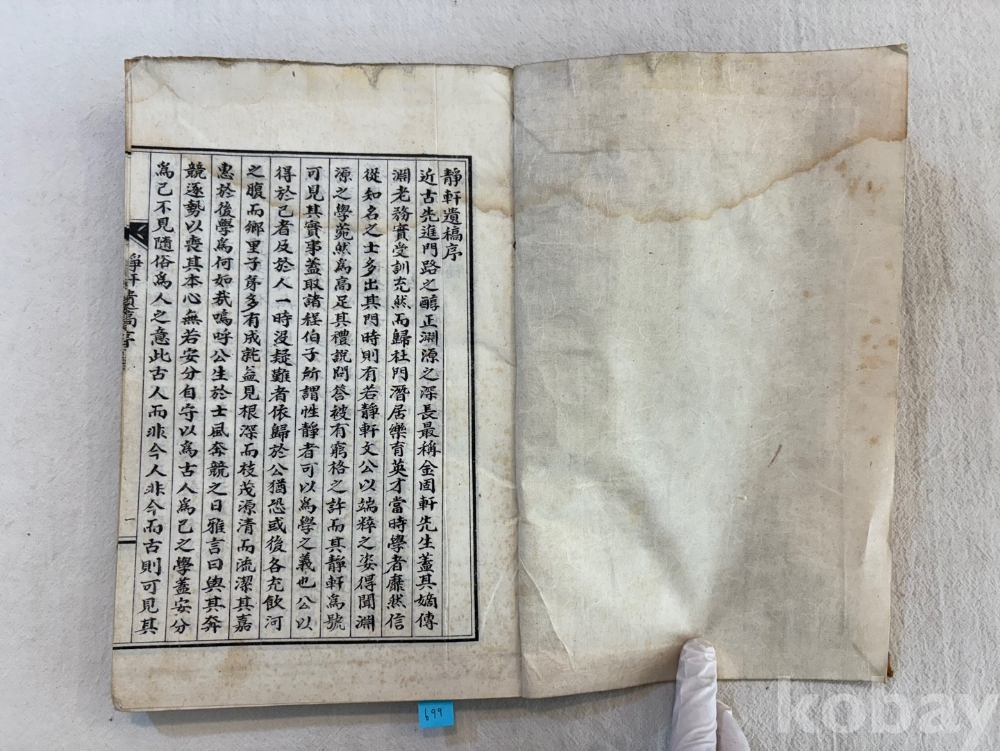 靜軒遺稿序
近古先進門路之醇正淵源之深長最稱金固軒先生蓋其嫡傳
淵老務實受訓充然而歸杜門潛居樂育英才當時學者靡然信
從知名之士多出其門時則有若靜軒文公以端粹之姿得聞淵
源之學菀然爲高足其禮說問答被有窮格之許而其靜軒爲號
可見其實事蓋取諸程伯子所謂性靜者可以爲學之義也公以
得於己者及於人一時沒疑難者依歸於公猶恐或後各充飮河
之腹而鄉里子弟多有成就益見根深而枝茂源清而流潔其嘉
惠於後學爲何如哉嗚呼公生於士風奔競之日雅言曰與其奔
競逐勢以喪其本心無若安分自守以爲古人爲己之學蓋安分
爲己不見隨俗爲人之意此古人而非今人非今而古則可見其
靜軒遺稿序
一
699
kobay